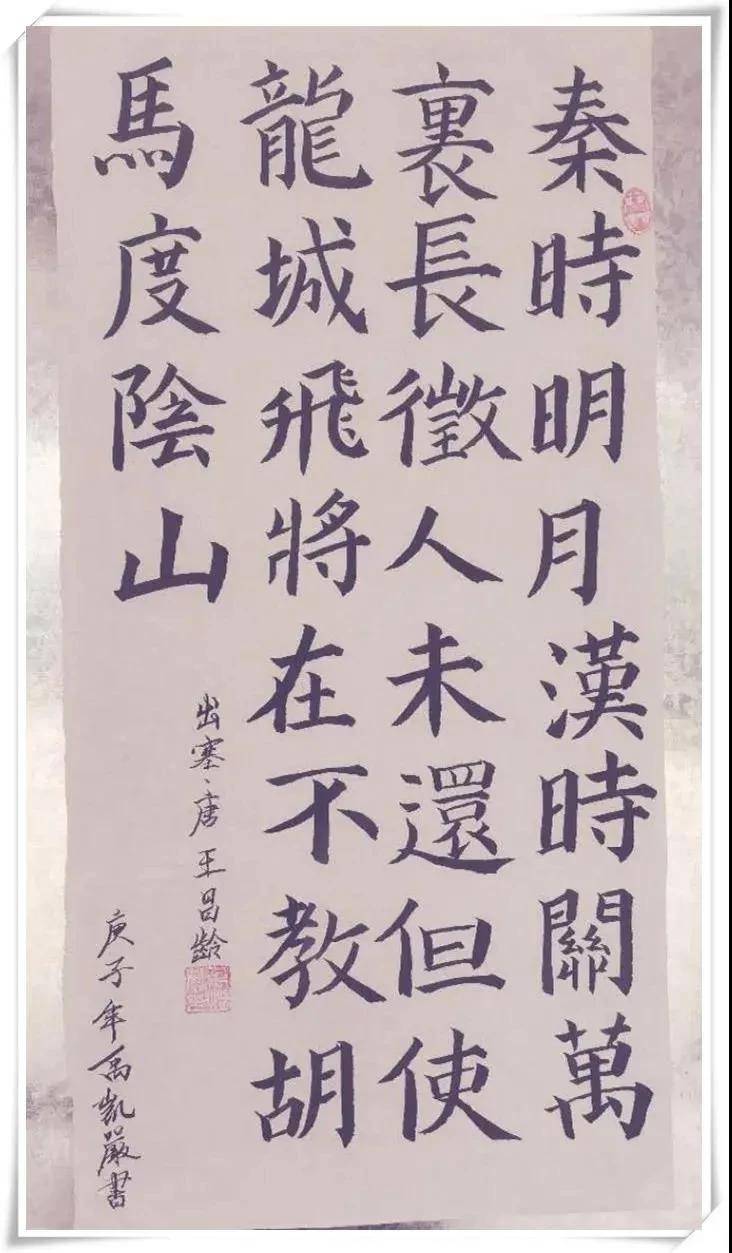 秦時明月漢時關萬
裏長徵人未還但使
龍城飛將在不教胡
馬度陰山
出塞、唐王昌齡
庚子年禹凱嚴書